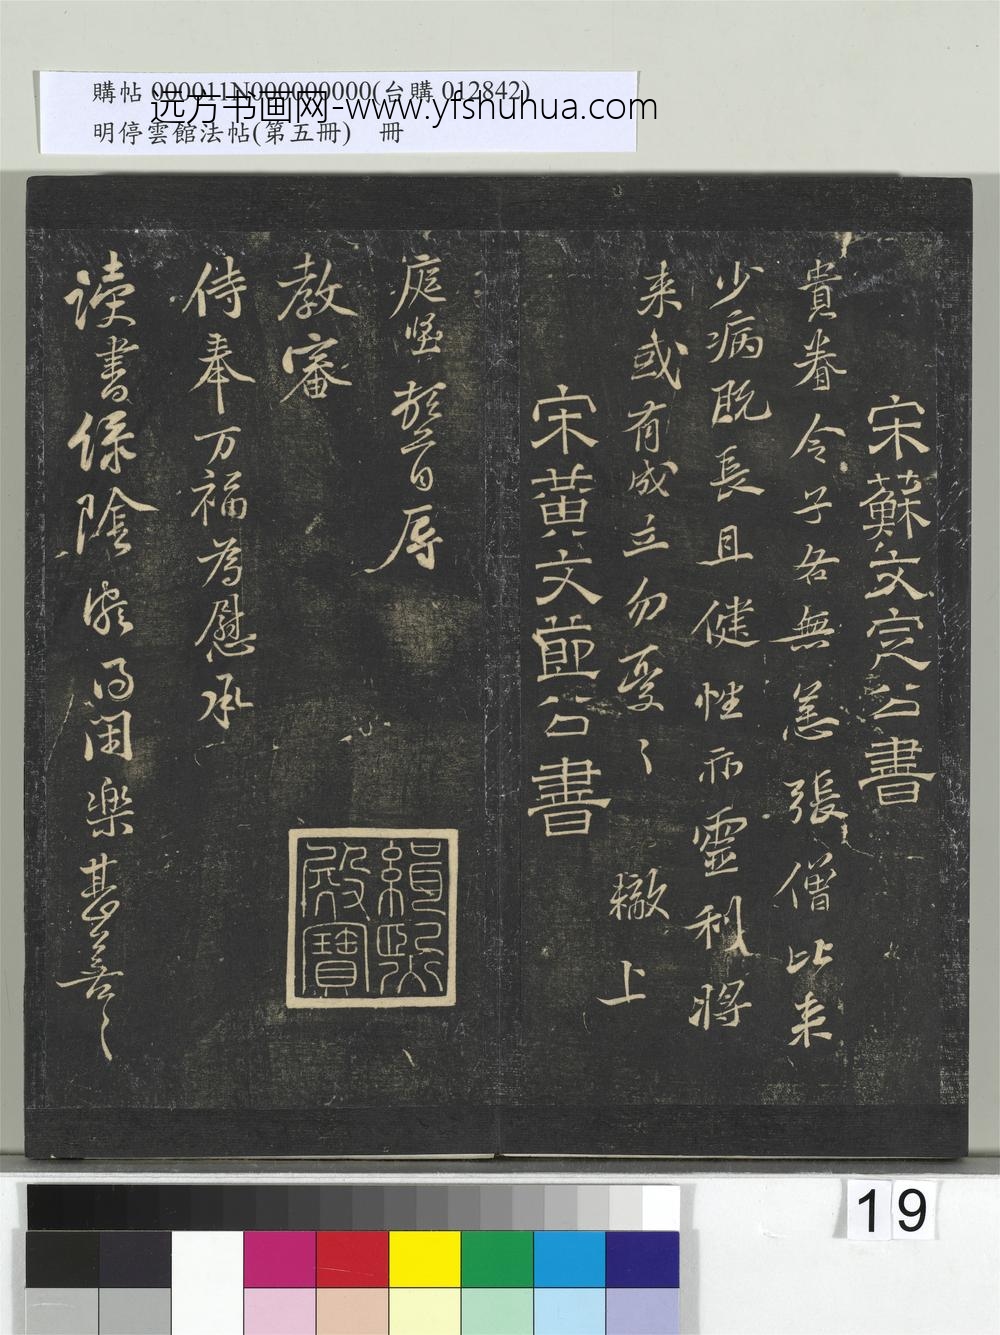 購帖 000011N000000000(台購 012842)
远方书画网-www.yfshuhua.com
明停雲館法帖(第五冊) 冊
宋蘇文定公書
貴眷令子各無恙張僧比来
少病既長且健性亦靈利将
来或有成立勿憂〻 轍上
宋黃文節公書
庭堅
辱
教審
侍奉万福為慰承
读書保陰
閑樂甚善〻
緝熙
殿寶
19